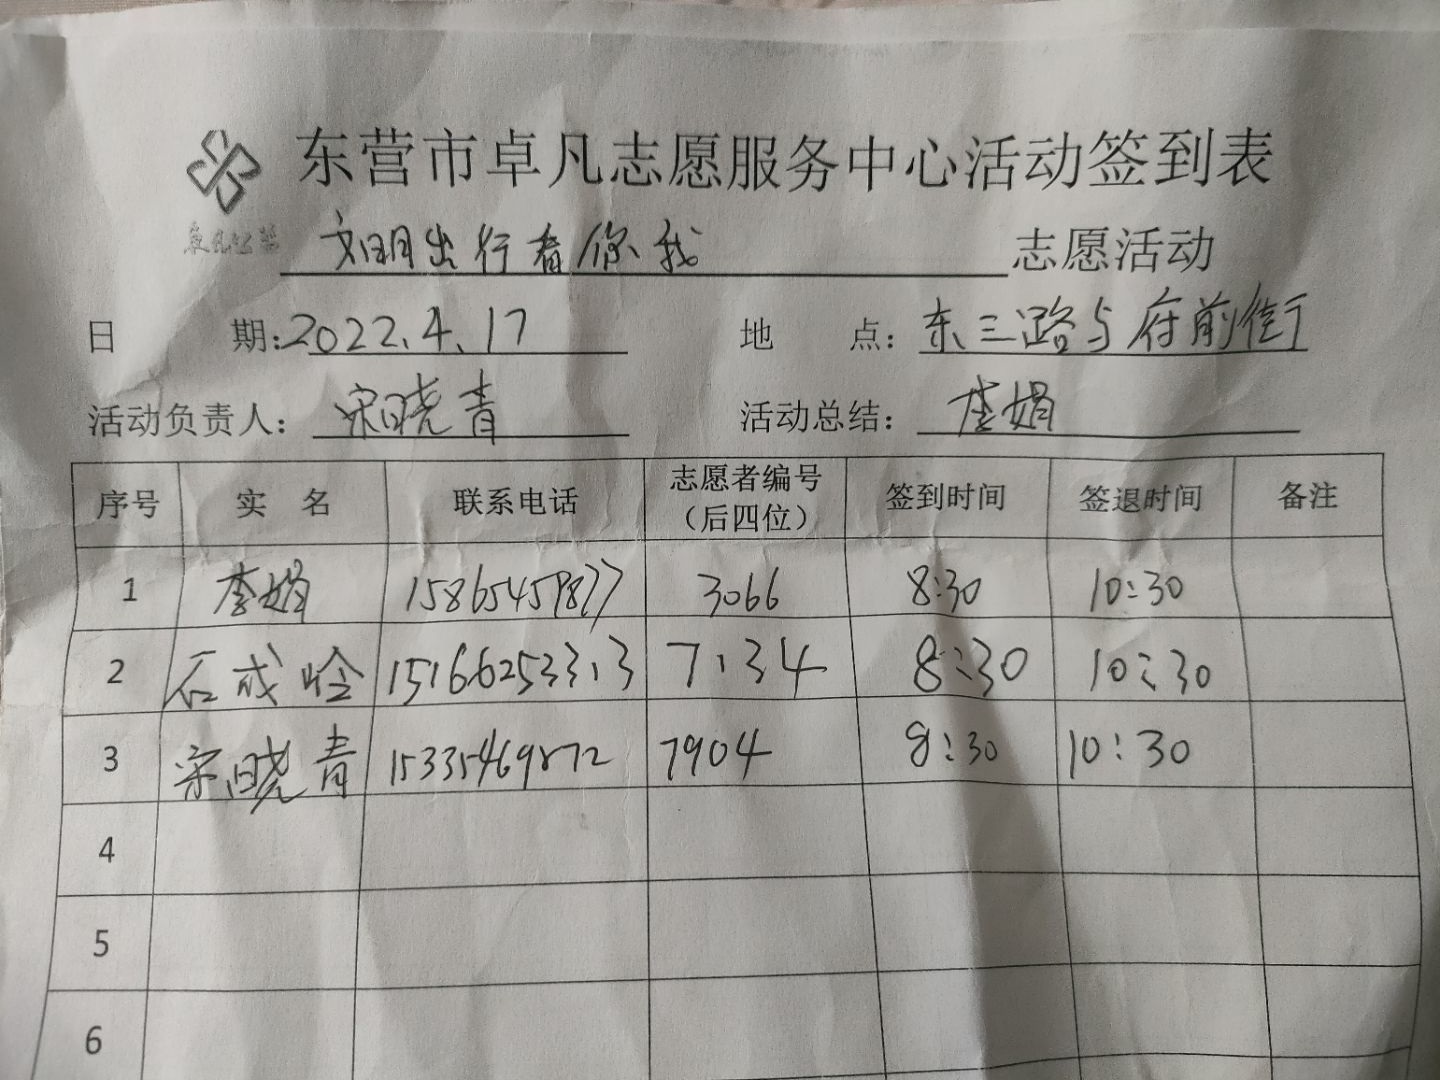 东营市卓凡志愿服务中心活动签到表
卓凡公益
文明出行看你我 志愿活动
日 期:2022.4.17 地 点:东三路与府前街
活动负责人:宋晓青 活动总结:李娟
序号 实 名 联系电话 志愿者编号(后四位) 签到时间 签退时间 备注
1 李娟 15865459877 3066 8:30 10:30
2 石成 15166253313 7134 8:30 10:30
3 宋晓青 15335469872 7904 8:30 10:30
4
5
6